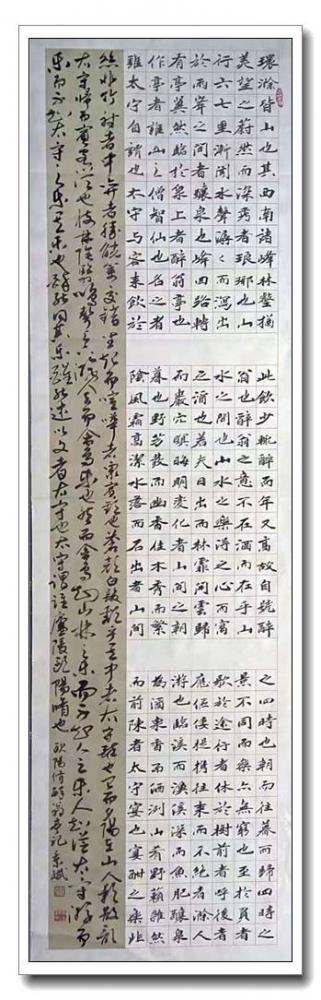 環滁皆山也其西南諸峰林壑猶
美望之蔚然而深秀者琅琊也山
行六七里漸聞水聲潺々而瀉出
於兩峰之間者釀泉也峰回路轉
有亭翼然臨於泉上者醉翁亭也
作亭者誰山之僧智仙也名之者
誰太守自謂也太守與客來飲於
此飲少輒醉而年又高故自號醉
翁也醉翁之意不在酒而在乎山
水之間也山水之樂得之心而寓
之酒也若夫日出而林霏開雲歸
而巖穴暝晦明變化者山間之朝
暮也野芳發而幽香佳木秀而繁
陰風霜高潔水落而石出者山間
之四時也朝而往暮而歸四時之
景不同而樂亦無窮也至於負者
歌於途行者休於樹前者呼後者
應傴僂提攜往來而不絕者滁人
游也臨溪而漁溪深而魚肥釀泉
為酒泉香而酒洌山肴野蔌雜然
而前陳者太守宴也宴酣之樂非
絲非竹射者中弈者勝觥籌交錯坐起而諠嘩者眾賓歡也蒼顏白髮頹乎其中者太守醉也已而夕陽在山人影散亂
太守歸而賓客從也樹林陰翳鳴聲上下遊人去而禽鳥樂也然而禽鳥知山林之樂而不知人之樂人知從太守游而
樂而不知太守之樂其樂也醉能同其樂醒能述以文者太守也太守謂誰廬陵歐陽脩也 歐陽脩醉翁亭記